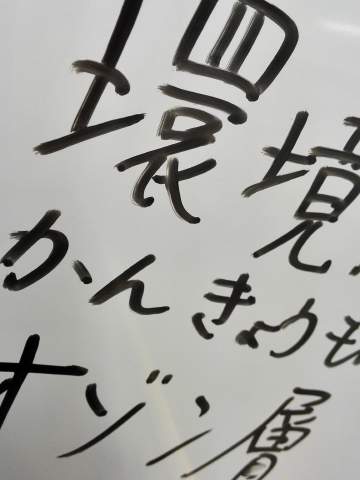 環境
かんきょうも
オゾン層